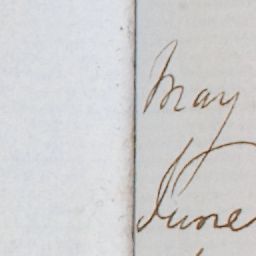 May
June